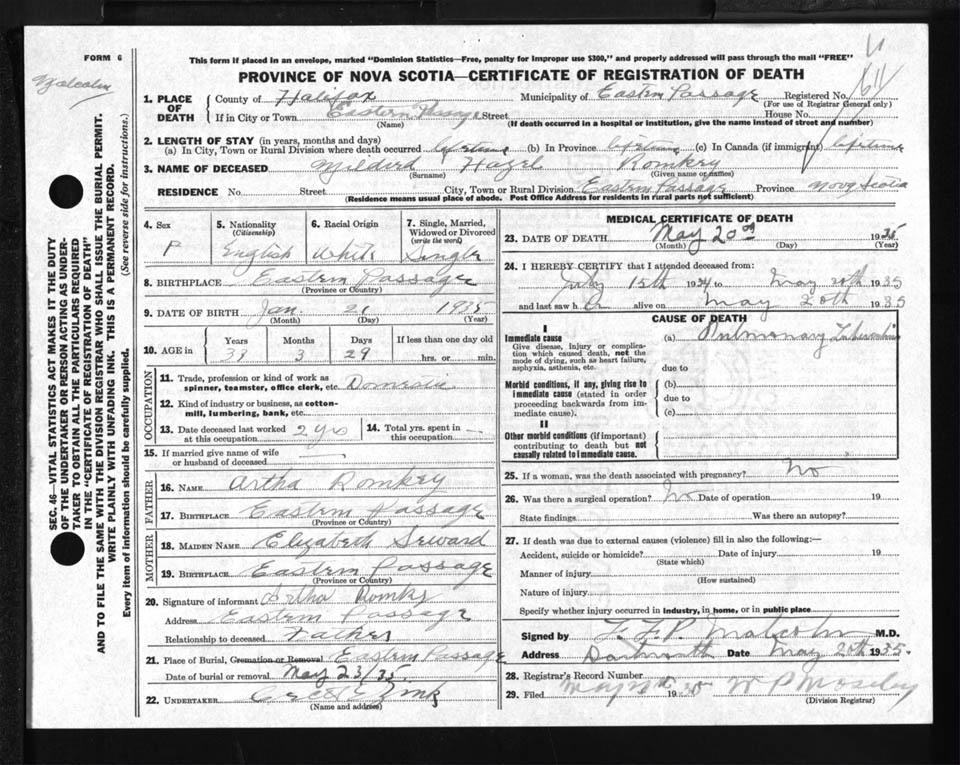 FORM 6
This form if placed in an envelope, marked "Dominion Statistics—Free, penalty for improper use $300," and properly addressed will pass through the mail "FREE"
Malcolm
PROVINCE OF NOVA SCOTIA—CERTIFICATE OF REGISTRATION OF DEATH
1. PLACE OF DEATH
County of Halifax Municipality of Eastern Passage Registered No.
(For use of Registrar General only)
If in City or Town Eastern Passage Street House No.
(Name) (If death occurred in a hospital or institution, give the name instead of street and number)
2. LENGTH OF STAY (in years, months and days)
(a) In City, Town or Rural Division where death occurred lifetime (b) In Province lifetime (c) In Canada (if immigrant) lifetime
3. NAME OF DECEASED Mildred Hazel Romkey
(Surname) (Given name or names)
RESIDENCE No. Street City, Town or Rural Division Eastern Passage Province Nova Scotia
(Residence means usual place of abode. Post Office Address for residents in rural parts not sufficient)
4. Sex
F
5. Nationality
(Citizenship)
English
6. Racial Origin
White
7. Single, Married, Widowed or Divorced
(write the word)
Single
8. BIRTHPLACE Eastern Passage
(Province or Country)
9. DATE OF BIRTH Jan. 21 1935
(Month) (Day) (Year)
10. AGE in
Years Months Days If less than one day old
39 3 29 hrs. or min.
OCCUPATION
11. Trade, profession or kind of work as spinner, teamster, office clerk, etc. Domestic
12. Kind of industry or business, as cotton-mill, lumbering, bank, etc.
13. Date deceased last worked at this occupation 2 yrs
14. Total yrs. spent in this occupation
15. If married give name of wife or husband of deceased
FATHER
16. NAME Artha Romkey
17. BIRTHPLACE Eastern Passage
(Province or Country)
MOTHER
18. MAIDEN NAME Elizabeth Seward
19. BIRTHPLACE Eastern Passage
(Province or Country)
20. Signature of informant Artha Romky
Address Eastern Passage
Relationship to deceased Father
21. Place of Burial, Cremation or Removal Eastern Passage
Date of burial or removal May 23/35
22. UNDERTAKER Zink
(Name and address)
MEDICAL CERTIFICATE OF DEATH
23. DATE OF DEATH May 20 1935
(Month) (Day) (Year)
24. I HEREBY CERTIFY that I attended deceased from:
July 15th 1934 to May 20th 1935
and last saw her alive on May 20th 1935
CAUSE OF DEATH
I
Immediate cause
Give disease, injury or complication which caused death, not the mode of dying, such as heart failure, asphyxia, asthenia, etc.
(a) Pulmonary Tuberculosis
due to
Morbid conditions, if any, giving rise to immediate cause (stated in order proceeding backwards from immediate cause).
(b)
due to
(c)
II
Other morbid conditions (if important) contributing to death but not causally related to immediate cause.
25. If a woman, was the death associated with pregnancy? No
26. Was there a surgical operation? No Date of operation 19
State findings Was there an autopsy?
27. If death was due to external causes (violence) fill in also the following:—
Accident, suicide or homicide? Date of injury 19
(State which)
Manner of injury
(How sustained)
Nature of injury
Specify whether injury occurred in industry, in home, or in public place
Signed by F. F. P. Malcolm M.D.
Address Dartmouth Date May 20th 1935.
28. Registrar's Record Number
29. Filed 1935 W P Moseley
(Division Registrar)
SEC. 46—VITAL STATISTICS ACT MAKES IT THE DUTY
OF THE UNDERTAKER OR PERSON ACTING AS UNDER-
TAKER TO OBTAIN ALL THE PARTICULARS REQUIRED
IN THE "CERTIFICATE OF REGISTRATION OF DEATH"
AND TO FILE THE SAME WITH THE DIVISION REGISTRAR WHO SHALL ISSUE THE BURIAL PERMIT.
WRITE PLAINLY WITH UNFADING INK. THIS IS A PERMANENT RECORD.
Every item of information should be carefully supplied. (See reverse side for instructions.)